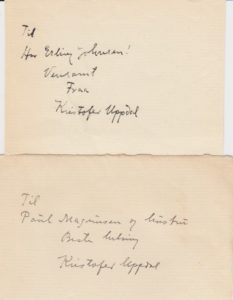 Til
Hr Erling Johnsen!
Vensamt
Fraa
Kristofer Uppdal
Til
Paul Magnussen og
Beste helsing
Kristofer Uppdal